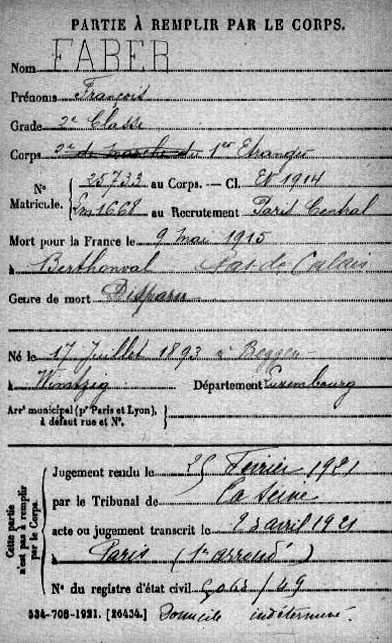 PARTIE À REMPLIR PAR LE CORPS.
Nom FABER
Prénoms François
Grade 2e Classe
Corps 2e de marche du 1er Etranger
N° Matricule. { 25733 au Corps. — Cl. EV 1914
Em 1668 au Recrutement Paris Central
Mort pour la France le 9 Mai 1915
à Berthonval Pas de Calais
Genre de mort Disparu
Né le 17 Juillet 1893 à Beggen
à Département Luxembourg
Arrt municipal (pr Paris et Lyon), à défaut rue et N°. {
Cette partie n'est pas à remplir par le Corps.
Jugement rendu le 25 Février 1921
par le Tribunal de la Seine
acte ou jugement transcrit le avril 1921
à Paris (1er arrondt)
N° du registre d'état civil / 49
534-708-1921. [26434.] Domicile indéterminé.